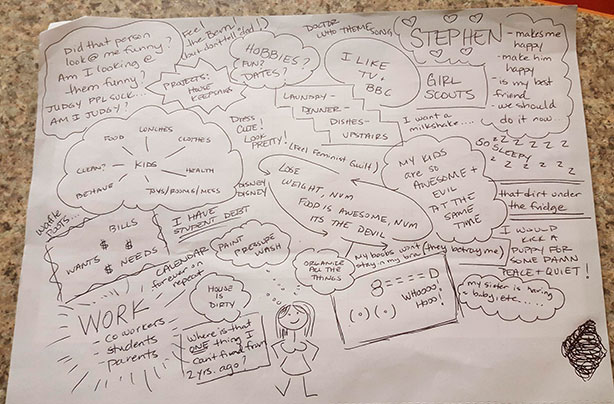 Did that person
look @ me funny?
Am I looking @
them funny?
JUDGY PPL SUCK...
AM I JUDGY?
Feel
the Bern!
but don't tell
dad!
PROJECTS:
HOUSE
KEEPING
HOBBIES?
FUN?
DATES?
DOCTOR
WHO THEME
SONG
I LIKE
TV +
BBC
STEPHEN
- makes me
happy
- make him
happy
- is my best
friend
- we should
do it now...
GIRL
SCOUTS
LAUNDRY-
DINNER-
DISHES-
UPSTAIRS
I want a
milkshake....
SO SLEEPY
z z z z z z z z z
FOOD
LUNCHES
CLOTHES
CLEAN?
KIDS
HEALTH
BEHAVE
TOYS/ROOMS/MESS
DRESS
CUTE!
LOOK
PRETTY!
(Feel Feminist Guilt)
DISNEY
DISNEY
LOSE
WEIGHT, NUM
FOOD IS AWESOME, NUM
ITS THE DEVIL
MY KIDS
are so
AWESOME +
EVIL
AT THE
SAME
TIME
that dirt under
the fridge
I WOULD
KICK A
PUPPY FOR
SOME DAMN
PEACE + QUIET!
Waffle
BILLS
$ $
WANTS $ NEEDS
I HAVE
STUDENT DEBT
CALENDAR
forever on
repeat
PAINT
PRESSURE
WASH
ORGANIZE
ALL THE
THINGS
My boobs wont
stay in my bra
(they betray me)
8====D
(.)(.)
WHOOOO!
HOOO!
my sister is having
a baby! etc....
HOUSE
IS
DIRTY
WORK
co workers
students
parents
Where is that
ONE thing I
can't find from
2 yrs. ago?